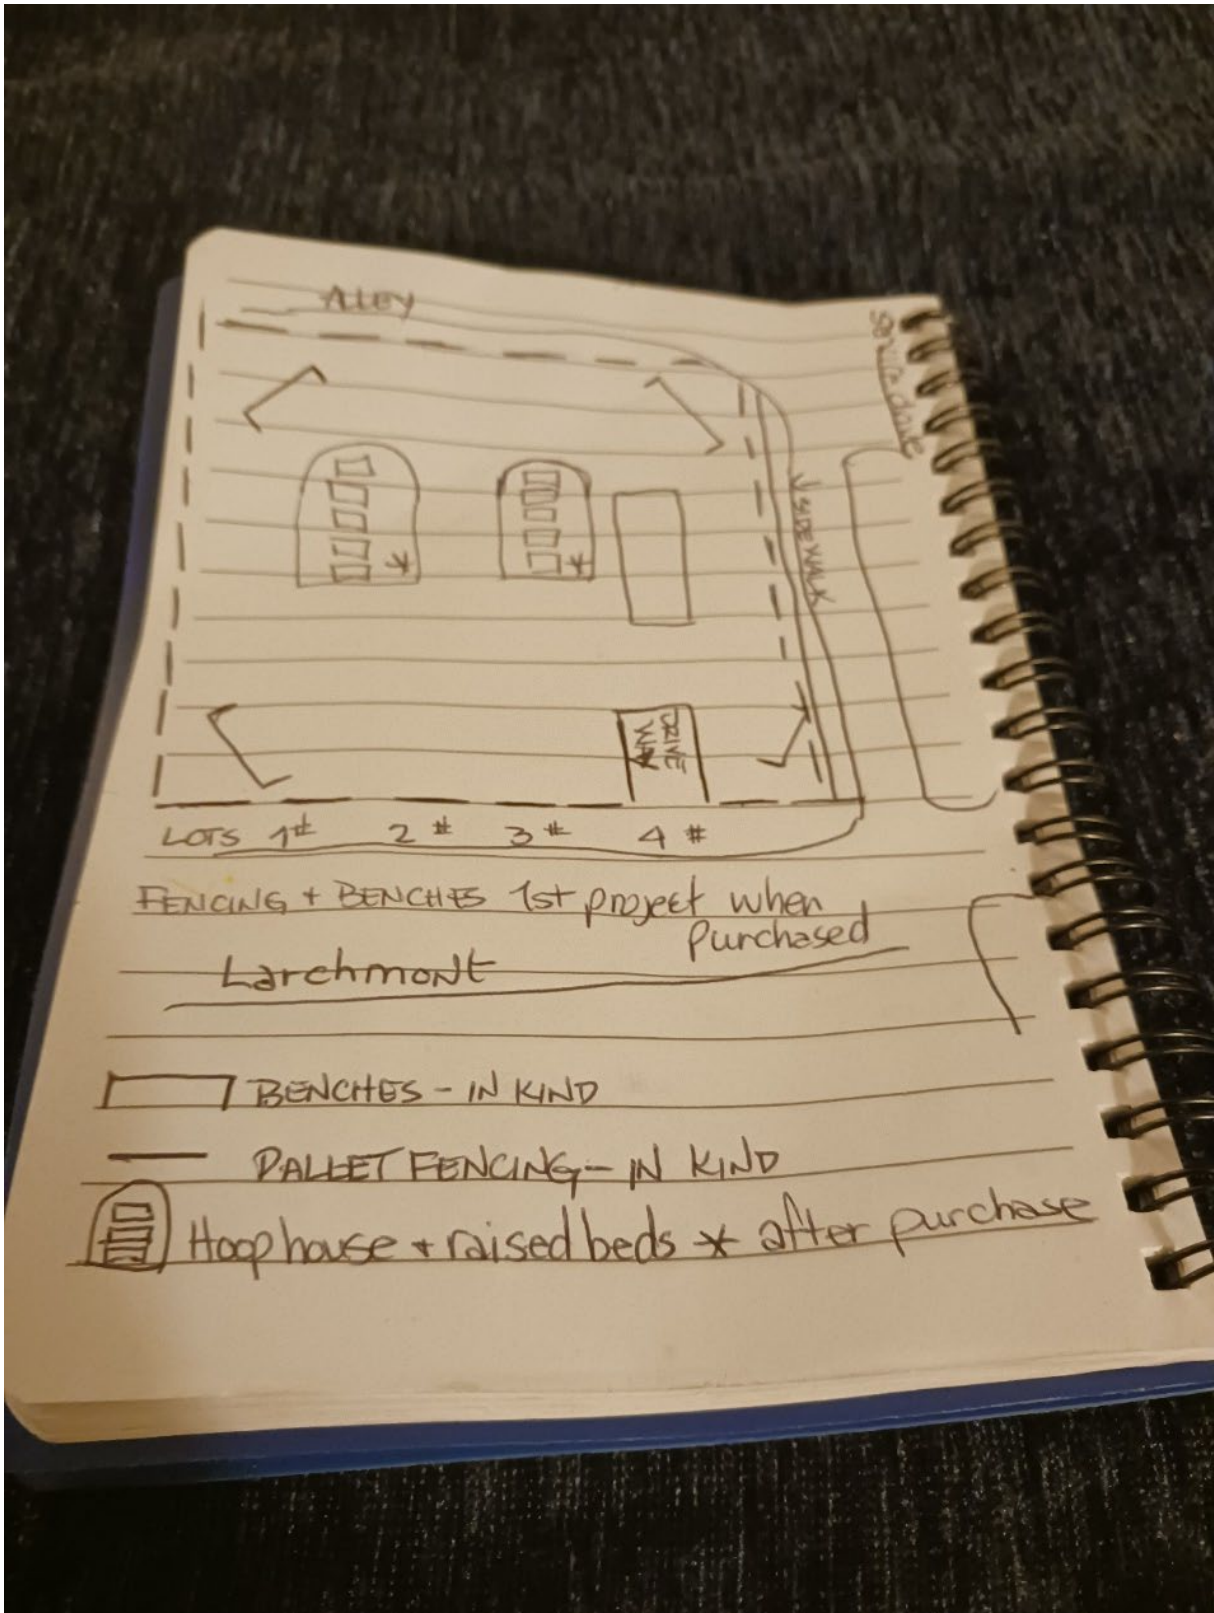 ALLEY
SIDEWALK
DRIVE
WAY
LOTS 1# 2# 3# 4#
FENCING + BENCHES 1st project when
purchased
Larchmont
BENCHES - IN KIND
PALLET FENCING - IN KIND
Hoophouse + raised beds * after purchase